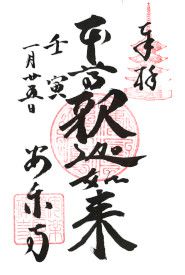 奉拝
本尊釈迦如来
壬寅
一月廿五日
安楽寺